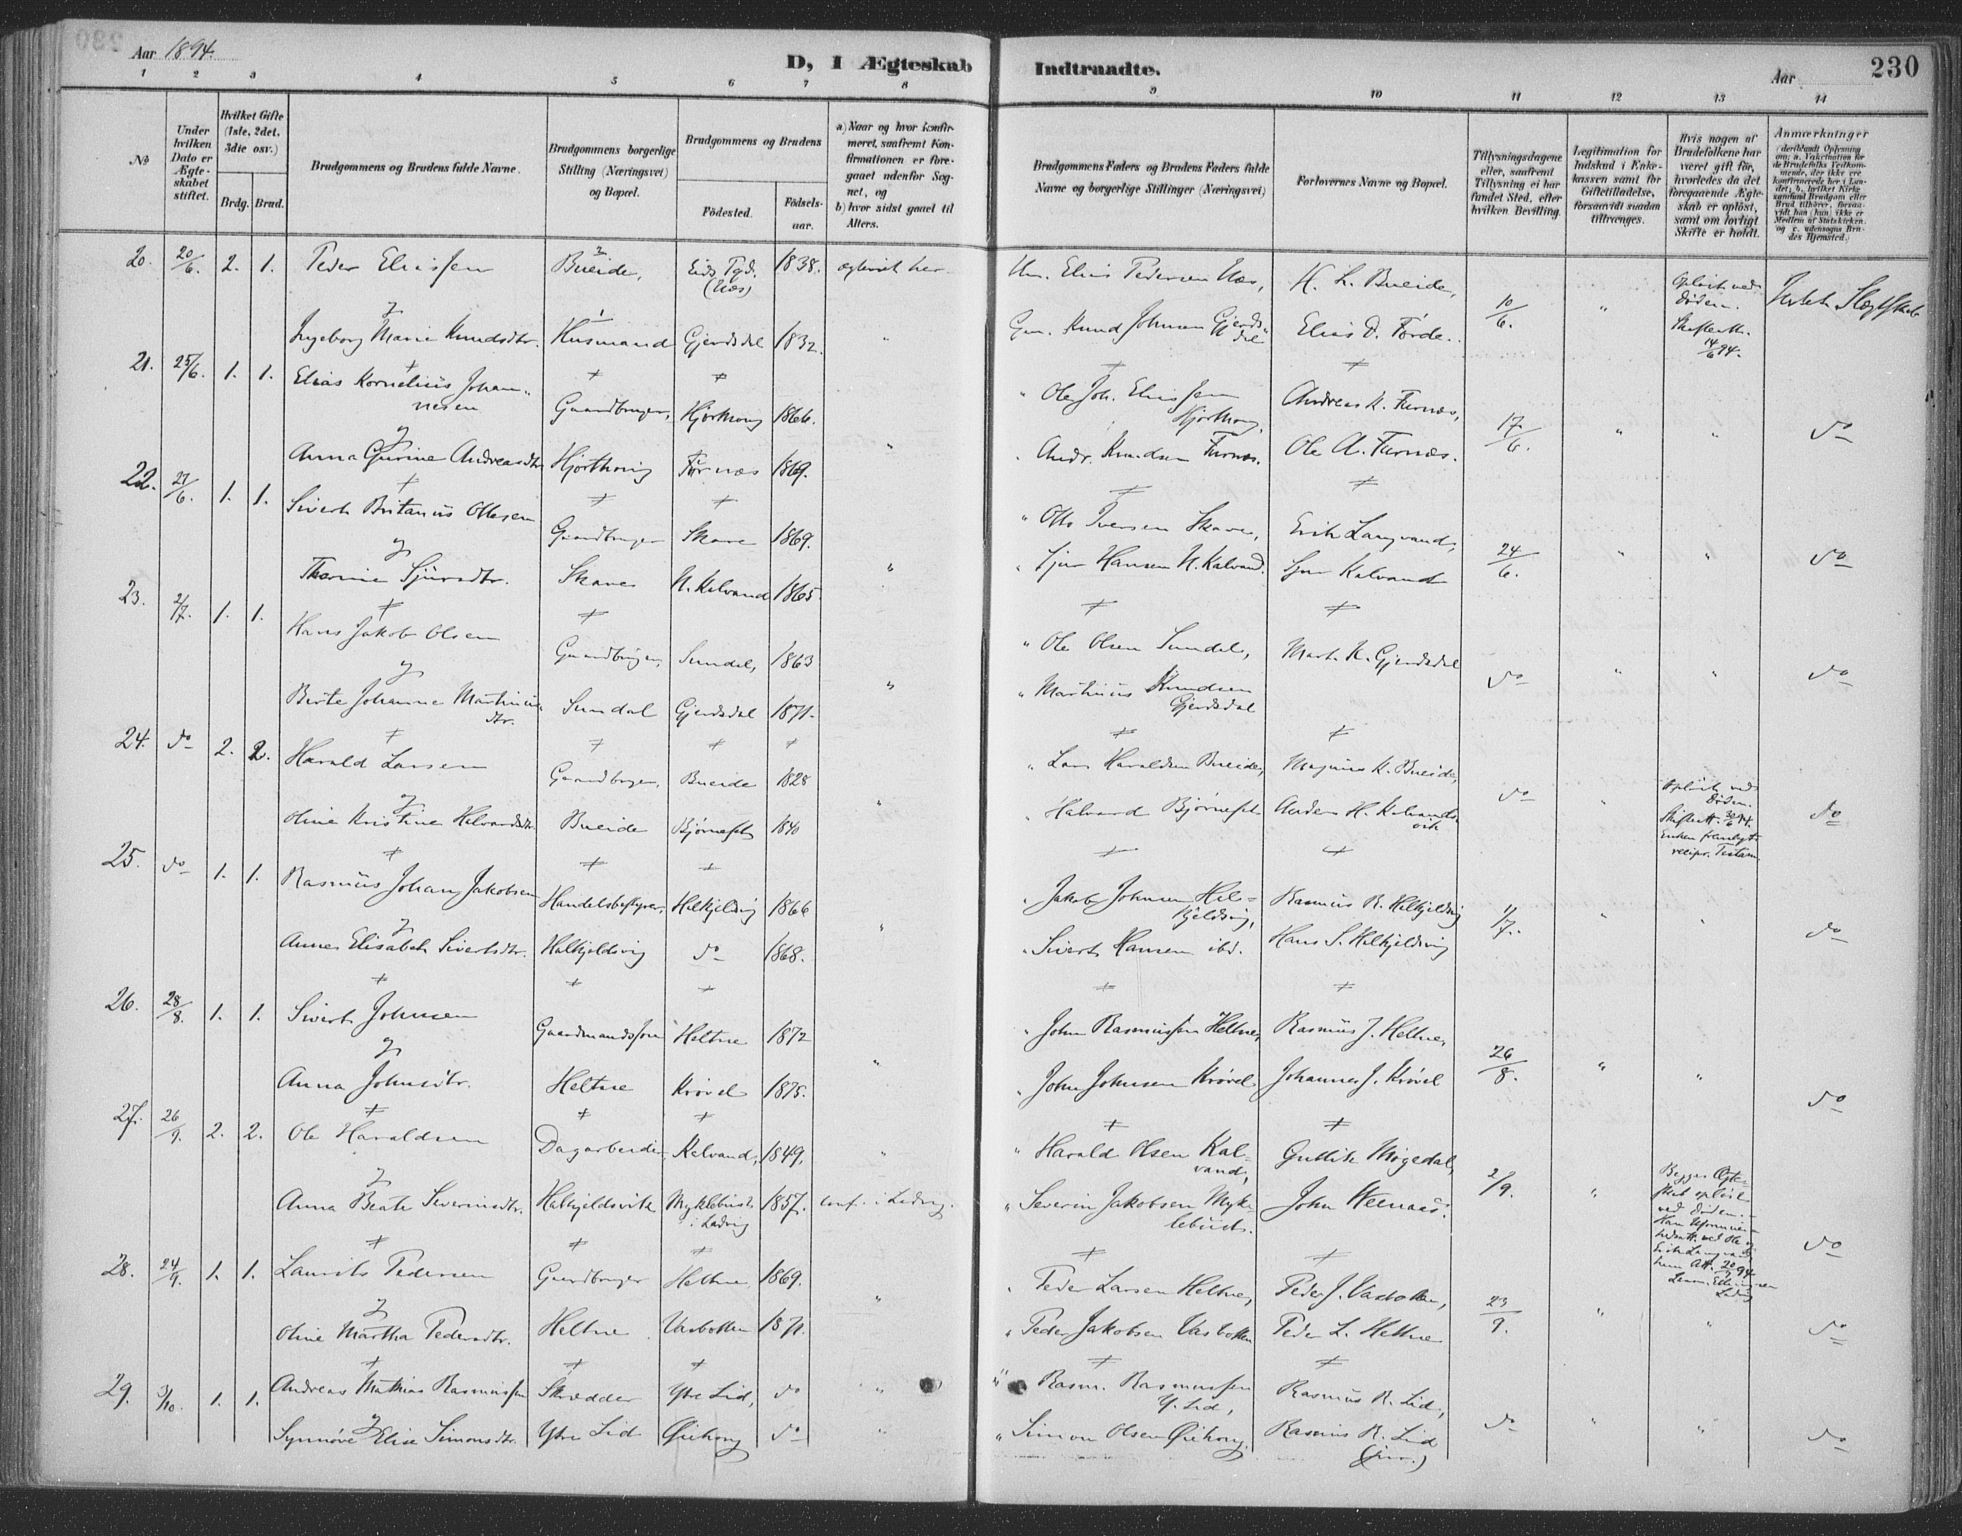 Aar 1894.
D, I Ægteskab
Indtraadte.
Aar
230
1 2 3 4 5 6 7 8 9 10 11 12 13 14
No
Under hvilken Dato er Ægteskabet stiftet.
Hvilket Gifte (1ste, 2det, 3die osv.)
Brdg. Brud.
Brudgommens og Brudens fulde Navne.
Brudgommens borgerlige Stilling (Næringsvei) og Bopæl.
Brudgommens og Brudens
Fødested.
Fødselsaar.
a) Naar og hvor konfirmeret, saafremt Konfirmationen er foregaaet udenfor Sognet, og
b) hvor sidst gaaet til Alters.
Brudgommens Faders og Brudens Faders fulde Navne og borgerlige Stillinger (Næringsvei)
Forlovernes Navne og Bopæl.
Tillysningsdagene eller, saafremt Tillysning ei har fundet Sted, efter hvilken Bevilling.
Legitimation for Indskud i Enkekassen samt for Giftetilladelse, forsaavidt saadan tiltrænges.
Hvis nogen af Brudefolkene har været gift før, hvorledes da det foregaaende Ægteskab er opløst, samt om lovligt Skifte er holdt.
Anmærkninger
20. 20/6. 2. 1. Peder Eliassen Bueide, Eids Pgd. (Næs) 1838. Elias Pedersen Næs, K. L. Bueide,
Ingeborg Marie Knudsdtr. Husmand Gjerdsdal 1832. Knud Johnsen Gjerdsdal Elias D. Førde. 10/6. " Opløst ved Døden. Skifteatt. 14/6 94.
21. 25/6. 1. 1. Elias Kornelius Johannesen Gaardbruger, Hjorthoug 1866. " Ole Joh. Eliassen Hjorthoug, Andreas K. Furnæs,
Anna Gurine Andreasdtr. Hjorthoug Furnæs 1869. " Andr. Knudsen Furnæs. Ole A. Furnæs. 17/6. " " do
22. 27/6. 1. 1. Sivert Britanus Ottesen Gaardbruger Skare 1869. " Otto Iversen Skare, Erik Langvand,
Thorine Sjursdtr. Skare N. Kalvand 1865. " Sjur Hansen N. Kalvand. Sjur Kalvand 24/6. " " do
23. 2/7. 1. 1. Hans Jakob Olsen Gaardbruger, Sundal, 1863 " Ole Olsen Sundal, Mart. K. Gjerdsdal
Berte Johanne Martinusdtr. Sundal Gjerdsdal 1871. " Martinus Knudsen Gjerdsdal do " " do
24. do 2. 2. Harald Larsen Gaardbruger, Bueide 1828 " Lars Haraldsen Bueide, Magnus K. Bueide,
Oline Kristine Halvardsdtr. Bueide Bjørneset 1840 " Halvard Bjørneset Anders H. Kalvandsvik do " Opløst ved Døden. Skifteatt. do
25. do 1. 1. Rasmus Johan Jakobsen Handelsbestyrer, Halkjeldsvig 1866 Jakob Johnsen Halkjeldsvig, Rasmus R. Halkjeldsvig
Anne Elisabeth Sivertsdtr. Halkjeldsvig do 1868. " Sivert Hansen ibd. Hans S. Halkjeldsvig 1/7. " " do
26. 28/8. 1. 1. Sivert Johnsen Gaardmandssøn Heltne 1872 " John Rasmussen Heltne, Rasmus J. Heltne,
Anna Johnsdtr. Heltne Krøvel 1875. " John Johnsen Krøvel Johannes J. Krøvel 26/8. " " do
27. 26/9. 2. 2. Ole Haraldsen Dagarbeider, Kalvand, 1849, " Harald Olsen Kalvand, Guttik Møgedal,
Anna Beate Severinsdtr. Halkjeldsvik Myklebust i Ladvig 1857. conf. i Ladvig. " Severin Jakobsen Myklebust. John Aeenaas. 2/9. " Begges Ægteskab opløst ved Døden. do
28. 24/9. 1. 1. Laurits Pedersen Gaardbruger Heltne 1869. Peder Larsen Heltne, Peder J. Vasbotten,
Oline Martha Pedersdtr. Heltne Vasbotten 1871. " Peder Jakobsen Vasbotten Peder L. Heltne 23/9. " " do
29. 3/10. 1. 1. Andreas Mathias Rasmussen Skrædder Ytre Lid, do " Rasm. Rasmussen Y. Lid, Rasmus R. Lid,
Synnøve Elise Simonsdtr. Ytre Lid Øiehoug do " Simon Olsen Øiehoug. Rasmus R. Lid (jun.) do " " do